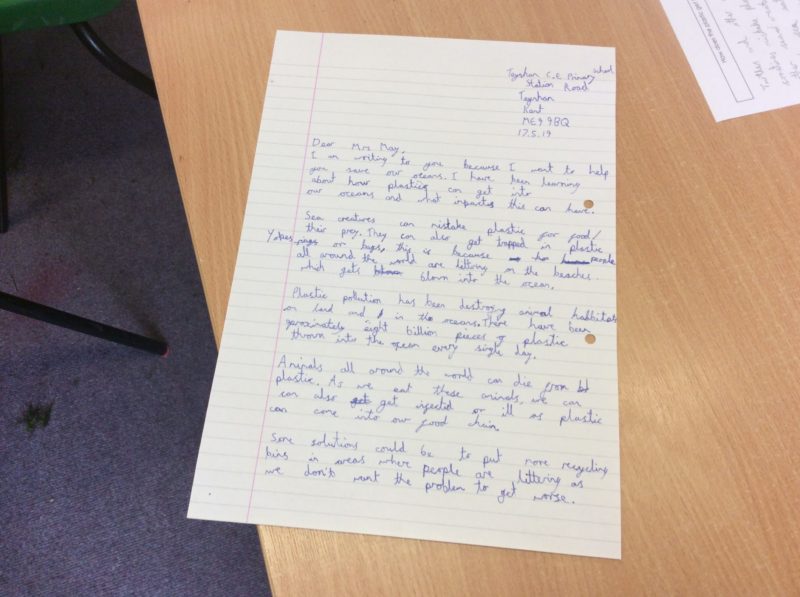 Teynham C.E. Primary school
Station Road
Teynham
Kent
ME9 9BQ
17.5.19
Dear Mrs May,
I am writing to you because I want to help
you save our oceans. I have been learning
about how plastics can get into
our oceans and what inpactes this can have.
Sea creatures can mistake plastic for food/
their prey. They can also get trapped in plastic
Yokes rings or bags, this is because people
all around the world are littering on the beaches
which gets blown into the ocean.
Plastic pollution has been destroy animal habbitats
on land and in the oceans. There have been
aproximately eight billion pieces of plastic
thrown into the ocean every single day.
Animals all around the world can die from
plastic. As we eat these animals, we can
can also get injected or ill as plastic
can come into our food chain.
Some solutions could be to put more recycling
bins in areas where people are littering as
we don't want the problem to get worse.